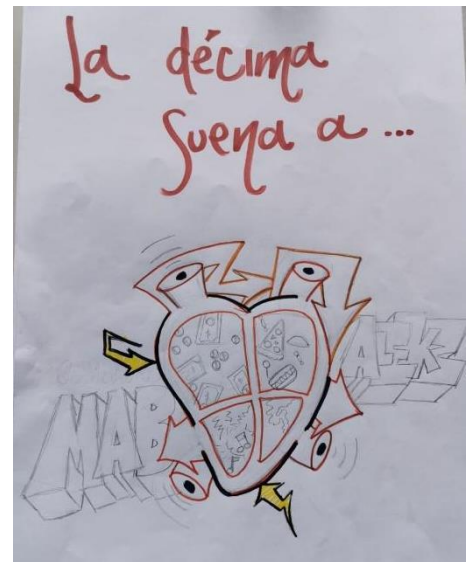 La décima
suena a ...
MAB